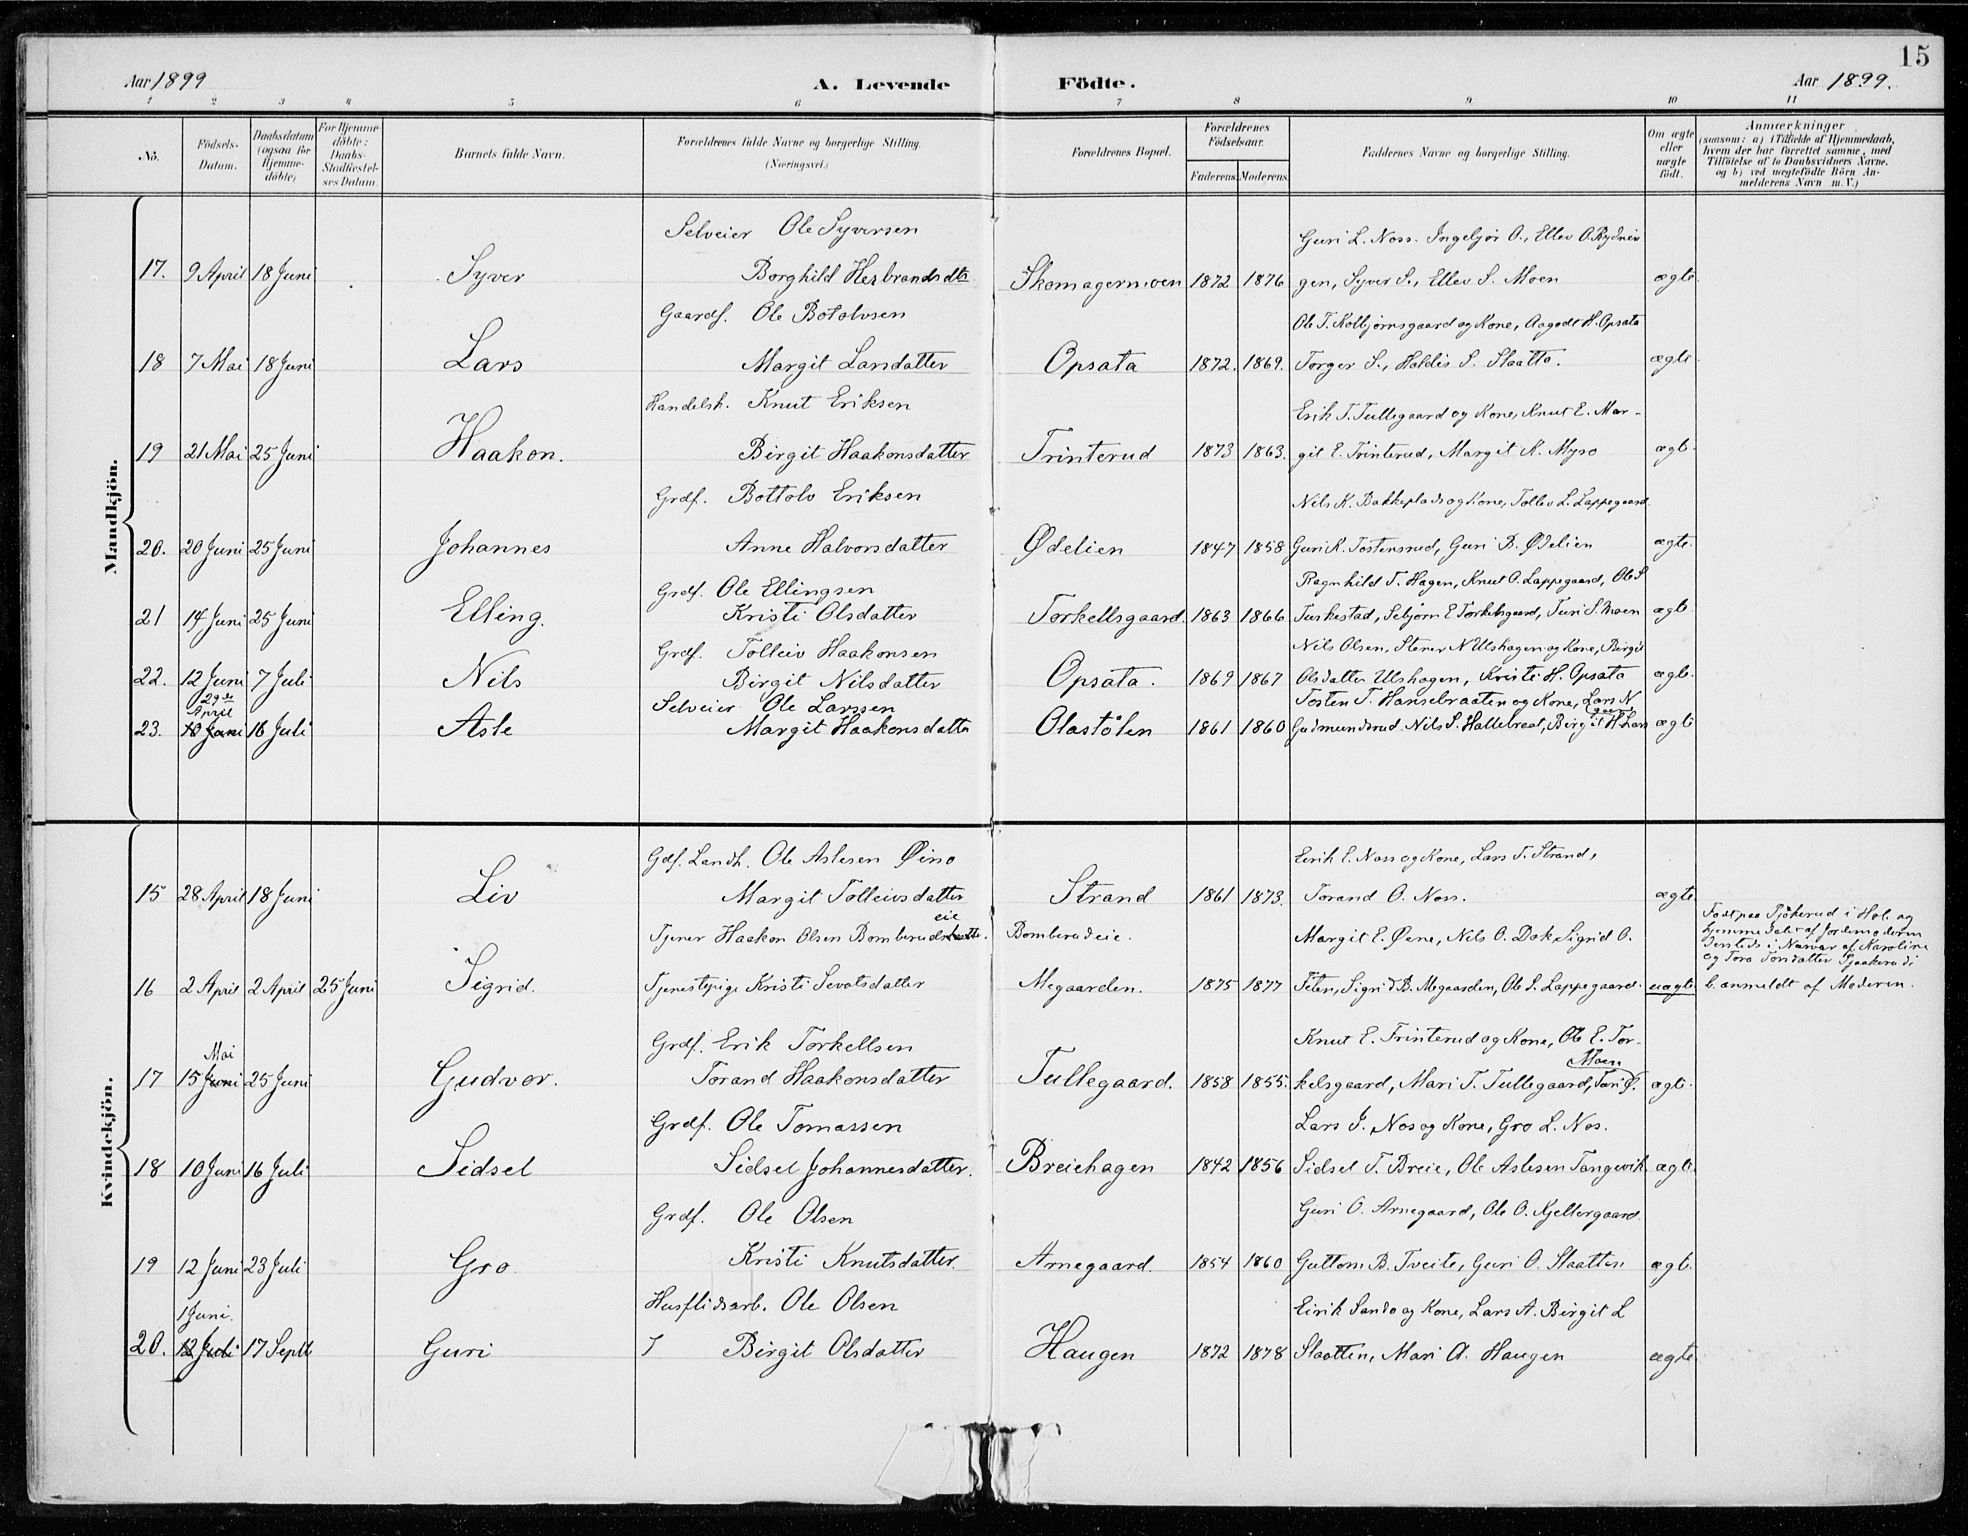 15
Aar 1899
A. Levende Födte.
Aar 1899.
1 2 3 4 5 6 7 8 9 10 11
No.
Födsels-Datum.
Daabsdatum (ogsaa for Hjemme-döbte)
For Hjemme-döbte: Daabs-Stadfæstel-ses Datum
Barnets fulde Navn.
Forældrenes fulde Navne og borgerlige Stilling. (Næringsvei.)
Forældrenes Bopæl.
Forældrenes Födselsaar.
Faderens. Moderens.
Faddernes Navne og borgerlige Stilling.
Om ægte eller uægte födt.
Anmærkninger
(saasom: a) i Tilfælde af Hjemmedaab, hvem der har forrettet samme, med Tilföielse af to Daabsvidners Navne, og b) ved uægtefödte Börn An-melderens Navn m. V.)
Mandkjön.
Selveier Ole Syversen
Guri L. Noss. Ingebjør O., Ellev O.
17. 9 April 18 Juni Syver Borghild Herbrandsdtr Skomagermoen 1872 1876 gen, Syver S., Ellev S. Moen ægte
Gaardf. Ole Botolvsen
Ole T. Kolbjørnsgaard og Kone, Aagodt H. Opsata
18 7 Mai 18 Juni Lars Margit Larsdatter Opsata 1872. 1869. Torger S., Haldis S. Slaatta. ægte
Handelsh. Knut Eriksen
Erik T. Tullegaard og Kone, Knut E. Mar-
19 21 Mai 25 Juni Haakon. Birgit Haakonsdatter Trinterud 1873 1863. git E. Trinterud, Margit K. Myro ægte
Grdf. Bottolv Eriksen
Nils K. Bakkeplads og Kone, Tollev L. Lappegaard
20. 20 Juni 25 Juni Johannes Anne Halvorsdatter Ødelien 1847 1858 Guri K. Tostensrud, Guri B. Ødelien ægte.
Grdf. Ole Ellingsen
Ragnhild T. Hagen, Knut O. Lappegaard, Ole S
21 14 Juni 25 Juni Elling. Kristi Olsdatter Torkellsgaard 1863 1866 Turkestad, Sebjørn E Torkelsgaard, Turi S. Moen ægte
Grdf. Tolleiv Haakonsen
Nils Olsen, Stener N Ulshagen og Kone, Birgit
22. 12 Juni 7 Juli Nils Birgit Nilsdatter Opsata. 1869 1867 Olsdatter Ulshagen, Kristi H. Opsata ægte.
29de April
Selveier Ole Larssen
Tosten T. Hansebraaten og Kone, Lars N
23. 10 Juni 16 Juli Asle Margit Haakonsdatte Olastölen 1861 1860 Gudmundsrud Nils S. Hallebraat, Birgit H. ægte
Kvindekjön.
Gdf. Landh. Ole Aslesen Øino
Eirik E. Noss og Kone, Lars T. Strand,
15 28 April 18 Juni Liv Margit Tolleivsdatter Strand 1861 1873. Torand O. Noss. ægte
Tjener Haakon Olsen Bomberudeie. Bomberudeie.
Margit E. Øene, Nils O. Dok, Sigrid O.
Født paa Tjökerud i Hol og hjemmedøbt af Jordmoderen dersteds i Nærvær af Karoline og Toro Torsdatter
16 2 April 2 April 25 Juni Sigrid. Tjenestepige Kristi Sevatsdatter Megaarden. 1875 1877 Peter, Sigrid B. Megaarden, Ole S. Lappegaard. uægte b. anmeldt af Moderen.
Grdf. Erik Torkellsen
Knut E. Trinterud og Kone, Ole E. Tor-
Mai
Moen
17 15 Juni 25 Juni Gudvor. Torand Haakonsdatter Tullegaard. 1858 1855. kelsgaard, Mari T. Tullegaard, Turi Ø. ægte.
Grdf. Ole Tomassen
Lars J. Nos og Kone, Gro L. Nos.
18 10 Juni 16 Juli Sidsel Sidsel Johannesdatter. Breiehagen 1842 1856 Sidsel T. Breie, Ole Aslesen Tangevik ægte.
Grdf. Ole Olsen
Guri O. Arnegaard, Ole O. Kjellergaard.
19 12 Juni 23 Juli Gro Kristi Knutsdatter. Arnegaard. 1854 1860 Guttorm B. Tveite, Guri O. Slaatten ægte.
1 Juni.
Husflidsarb. Ole Olsen
Eirik Sando og Kone, Lars A. Birgit L
20. 12 Juli 17 Septb Guri Birgit Olsdatter Haugen 1872 1878 Slaatten, Mari A. Haugen ægte